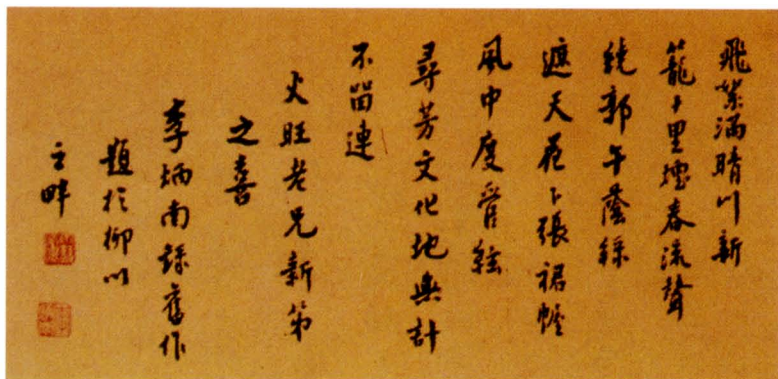 飛絮滿晴川新
籠十里煙春流聲
繞郭午蔭綠
遮天花下張裙幄
風中度管絃
尋芳文化地無計
不留連
火旺老兄新第
之喜
李炳南錄舊作
題於柳川
之畔